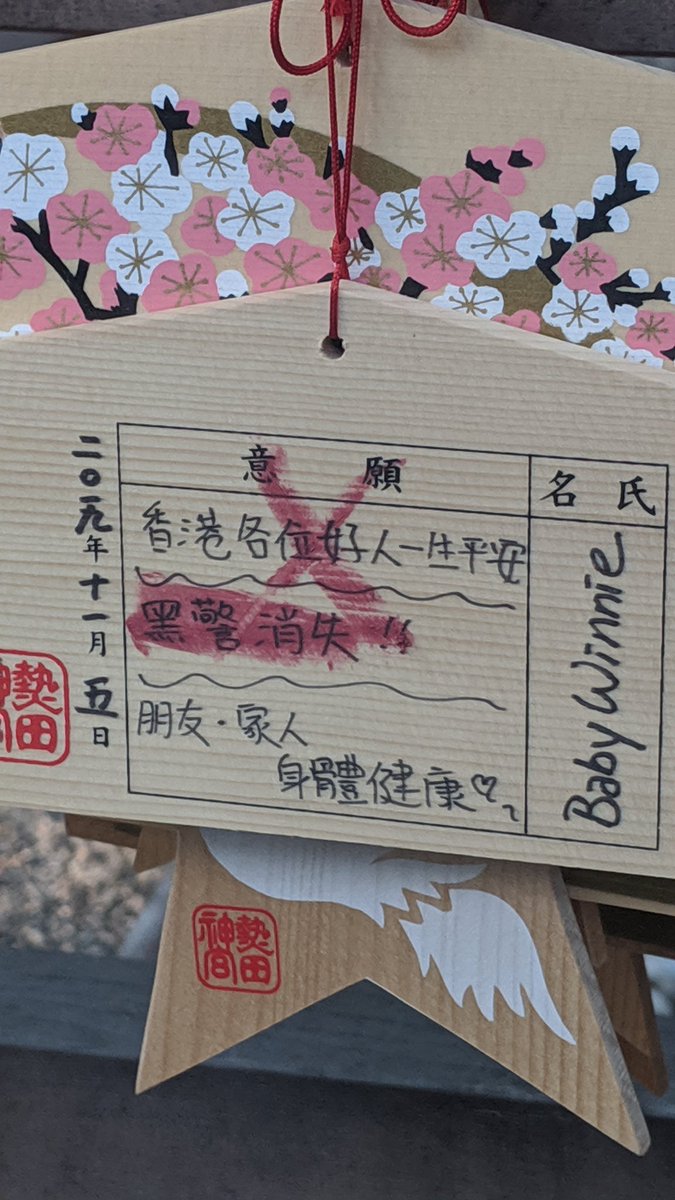 願意
氏名
香港各位好人一生平安
黑警消失!!
朋友·家人
身體健康♡~
Baby Winnie
二〇一九年十一月五日
熱田神宮
熱田神宮